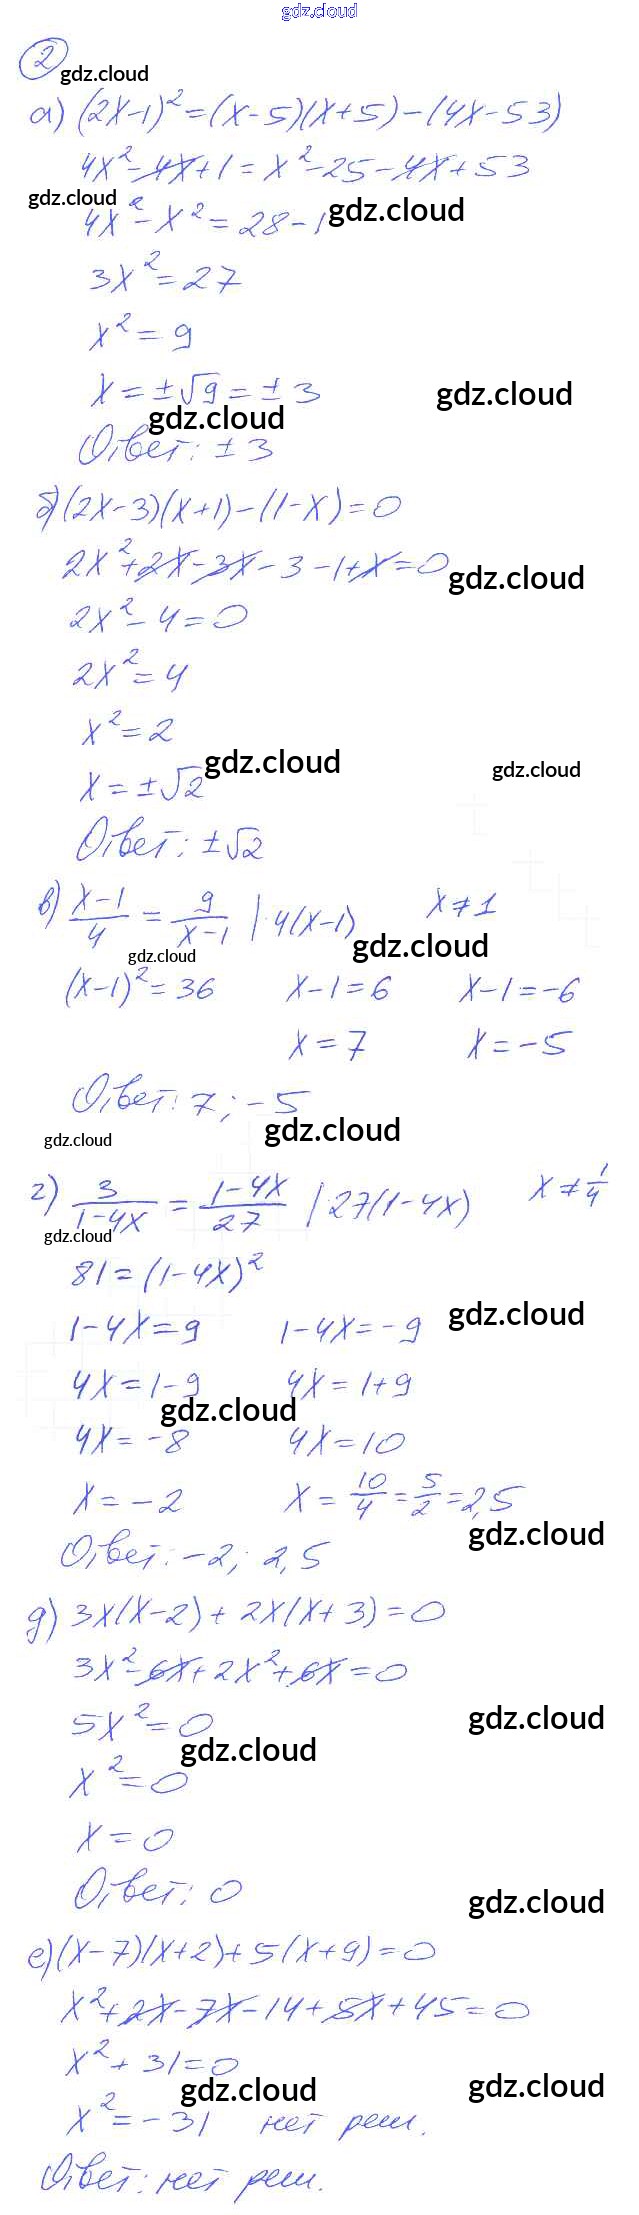 gdz.cloud
2
gdz.cloud
а) (2x-1)² = (x-5)(x+5) - (4x-53)
4x² - 4x + 1 = x² - 25 - 4x + 53
gdz.cloud
4x² - x² = 28 - 1
gdz.cloud
3x² = 27
x² = 9
x = ±√9 = ±3
gdz.cloud
gdz.cloud
Ответ: ±3
б) (2x-3)(x+1) - (1-x) = 0
2x² + 2x - 3x - 3 - 1 + x = 0
gdz.cloud
2x² - 4 = 0
2x² = 4
x² = 2
gdz.cloud
gdz.cloud
x = ±√2
Ответ: ±√2
в) (x-1)/4 = 9/(x-1) | · 4(x-1) x ≠ 1
gdz.cloud
gdz.cloud
(x-1)² = 36 x-1 = 6 x-1 = -6
x = 7 x = -5
Ответ: 7; -5
gdz.cloud
gdz.cloud
г) 3/(1-4x) = (1-4x)/27 | · 27(1-4x) x ≠ 1/4
gdz.cloud
81 = (1-4x)²
gdz.cloud
1-4x = 9 1-4x = -9
4x = 1-9 4x = 1+9
gdz.cloud
4x = -8 4x = 10
x = -2 x = 10/4 = 5/2 = 2,5
gdz.cloud
Ответ: -2; 2,5
д) 3x(x-2) + 2x(x+3) = 0
3x² - 6x + 2x² + 6x = 0
5x² = 0
gdz.cloud
gdz.cloud
x² = 0
x = 0
Ответ: 0
gdz.cloud
е) (x-7)(x+2) + 5(x+9) = 0
x² + 2x - 7x - 14 + 5x + 45 = 0
x² + 31 = 0
gdz.cloud
gdz.cloud
x² = -31 нет реш.
Ответ: нет реш.